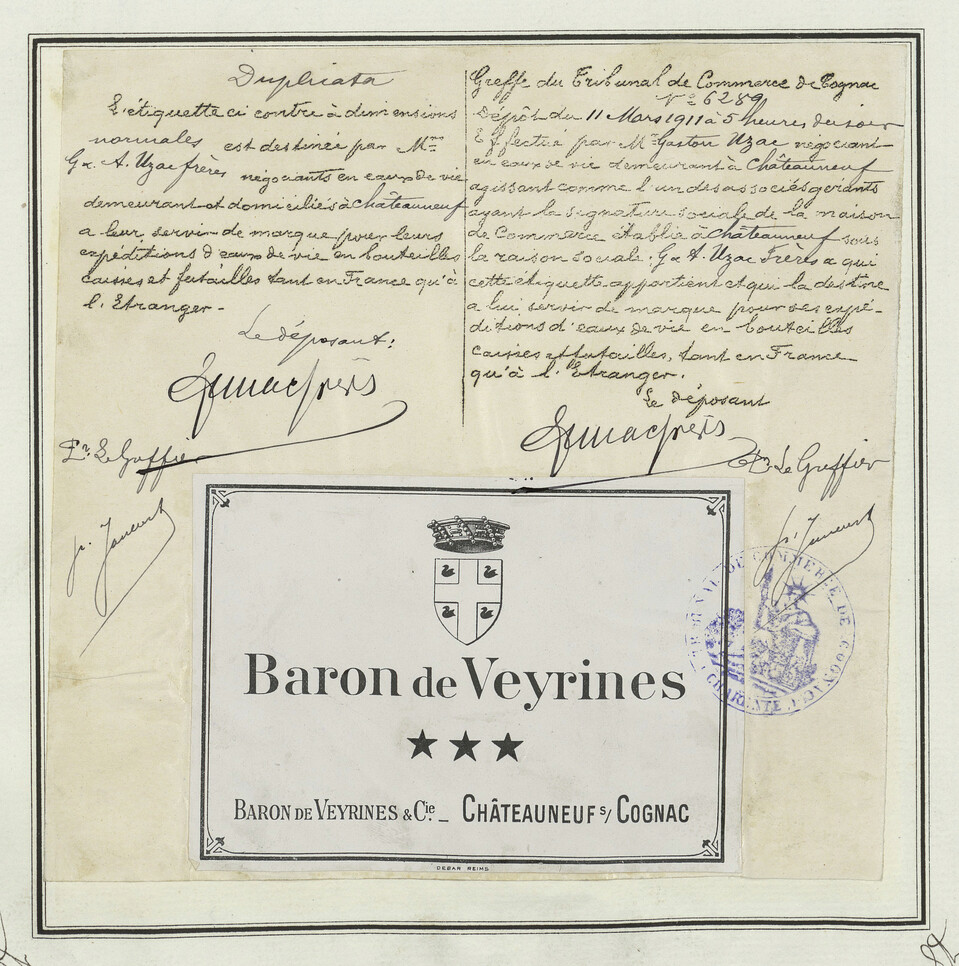 Duplicata
L'étiquette ci contre à dimensions
normales est destinée par Mrs
G & A. Uzac frères négociants en eaux de vie
demeurant et domiciliés à Châteauneuf
a leur servir de marque pour leurs
expéditions d'eaux de vie en bouteilles
caisses et futailles tant en France qu'à
l'Etranger.
Le déposant:
Pr. Le Greffier
Greffe du Tribunal de Commerce de Cognac
N° 6289
Dépôt du 11 Mars 1911 à 5 heures du soir
Effectué par Mr Gaston Uzac négociant
en eaux de vie demeurant à Châteauneuf
agissant comme l'un des associés gérants
ayant la signature sociale de la maison
de Commerce établie à Châteauneuf sous
la raison sociale: G & A. Uzac Frères a qui
cette étiquette appartient et qui la destine
a lui servir de marque pour ses expé-
ditions d'eaux de vie en bouteilles
caisses et futailles, tant en France
qu'à l'Etranger.
Le déposant
Le Greffier
Baron de Veyrines
★★★
BARON DE VEYRINES & Cie. _ CHÂTEAUNEUF s/ COGNAC
DEBAR REIMS
TRIBUNAL DE COMMERCE DE COGNAC